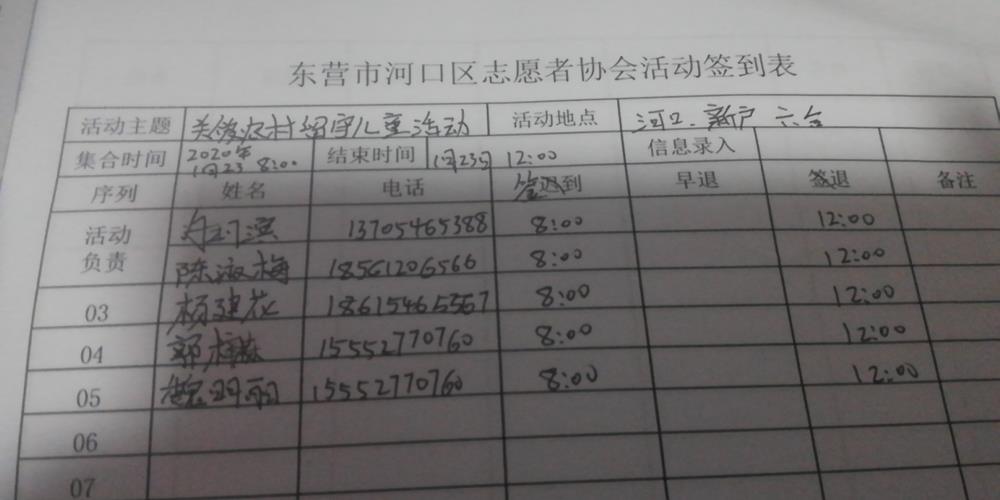 东营市河口区志愿者协会活动签到表
活动主题 关爱农村留守儿童活动 活动地点 河口 新户 六合
集合时间 2020年1月23 8:00 结束时间 1月23日 12:00 信息录入
序列 姓名 电话 签到 早退 签退 备注
活动负责 13705465388 8:00 12:00
陈淑梅 18561206566 8:00 12:00
03 杨建花 18615465567 8:00 12:00
04 郭梅 15552770760 8:00 12:00
05 15552770760 8:00 12:00
06
07